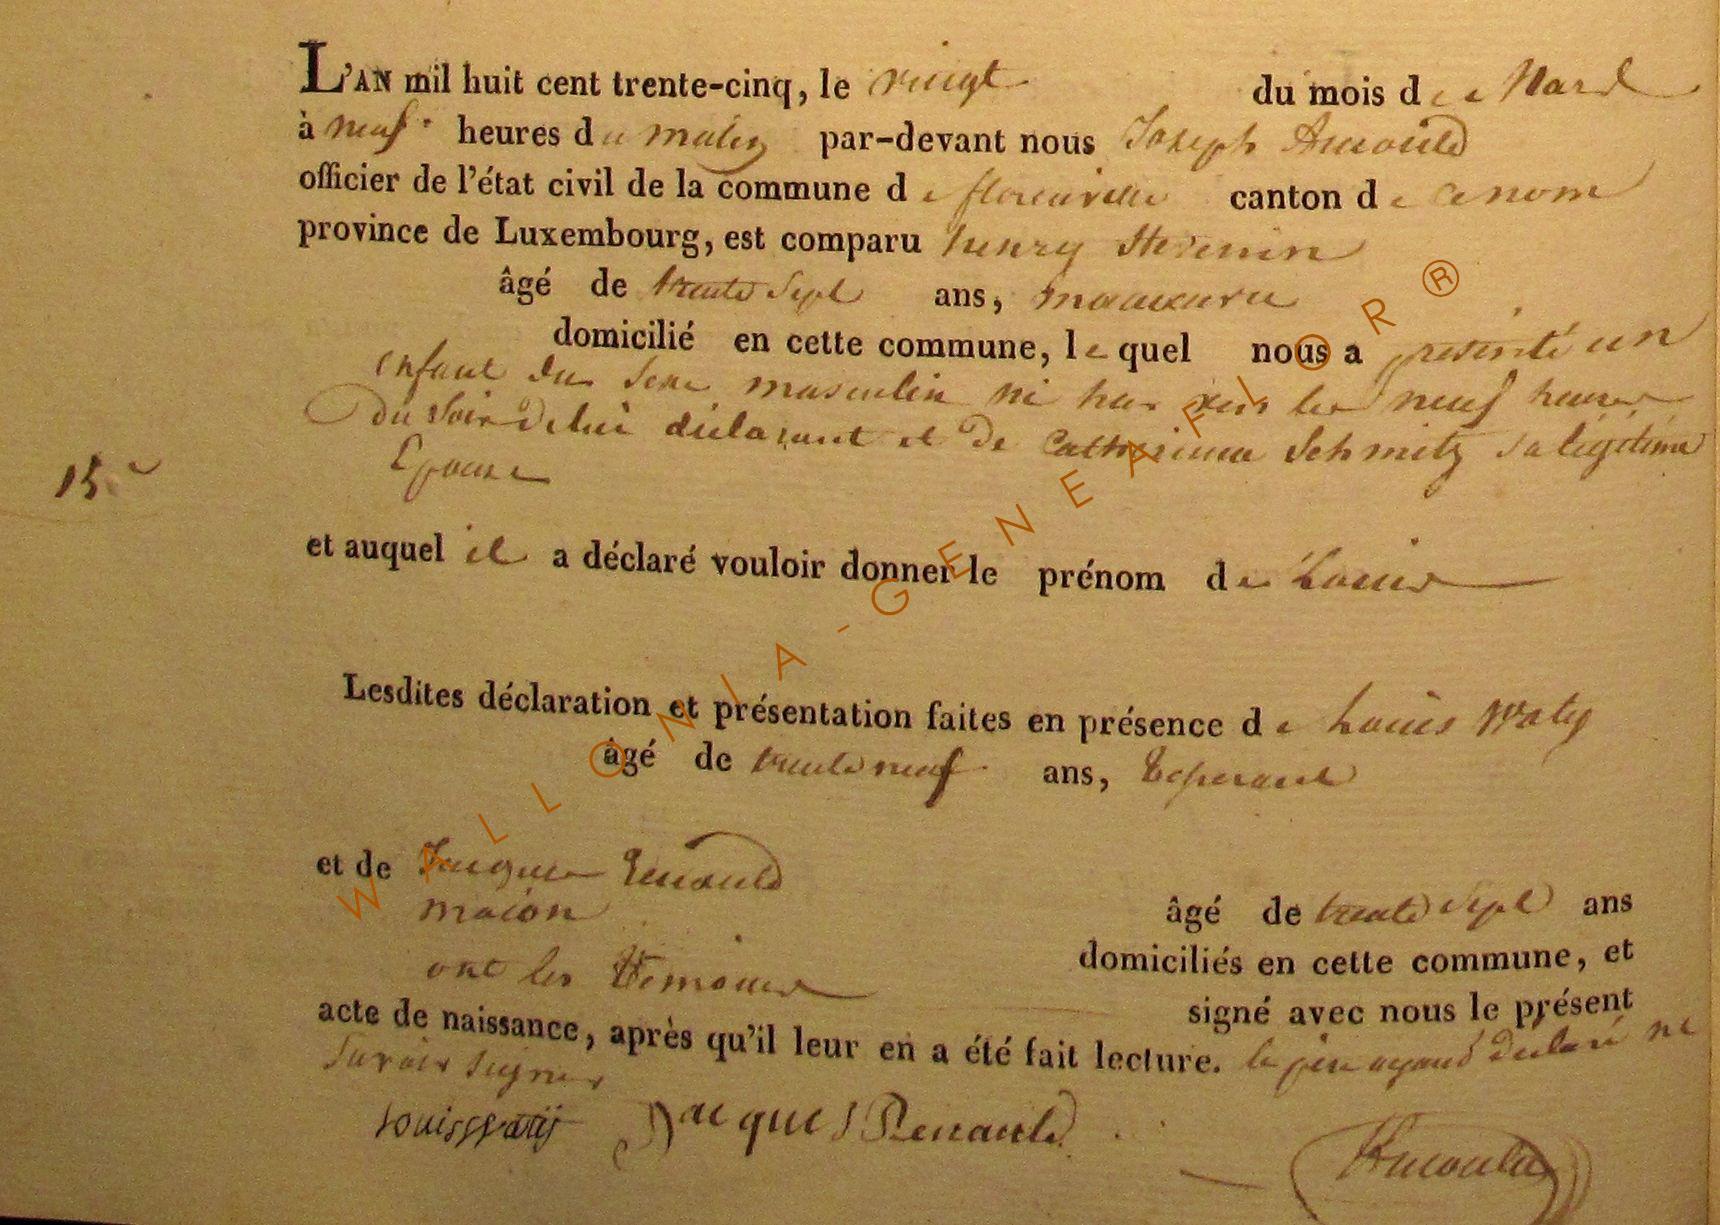 L'AN mil huit cent trente-cinq, le vingt du mois de Mars
à neuf heures du matin par-devant nous Joseph Arnould
officier de l'état civil de la commune de florenville canton de ce nom
province de Luxembourg, est comparu henry
âgé de trente sept ans, manœuvre
domicilié en cette commune, lequel nous a présenté un
enfant du sexe masculin né hier vers les neuf heures
du soir de lui déclarant et de Catherinne Schmitz sa légitime
Epouse
15e
et auquel il a déclaré vouloir donner le prénom de Louis
Lesdites déclaration et présentation faites en présence de Louis Waty
âgé de trente neuf ans,
et de Jacques Renauld
maçon
âgé de trente sept ans
domiciliés en cette commune, et
ont les témoins
signé avec nous le présent
acte de naissance, après qu'il leur en a été fait lecture. le père ayant déclaré ne
savoir signer
Jacques Renauld
Arnould
WALLONIA-GENEAFLOR®